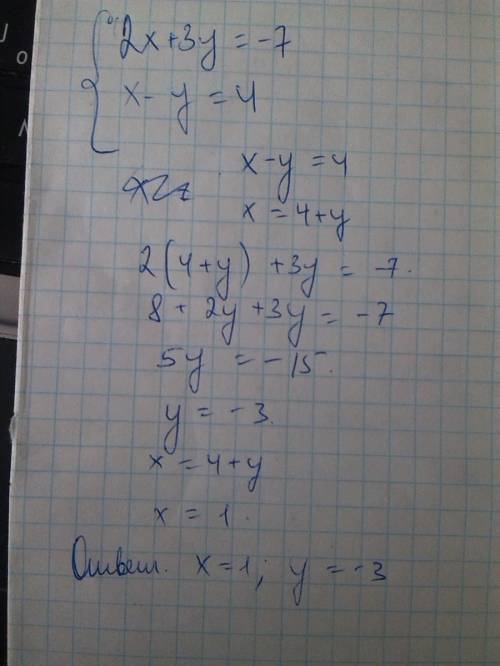 2x+3y=-7
x-y=4
x-y=4
x=4+y
2(4+y)+3y=-7.
8+2y+3y=-7
5y=-15.
y=-3.
x=4+y
x=1.
Ответ. x=1; y=-3